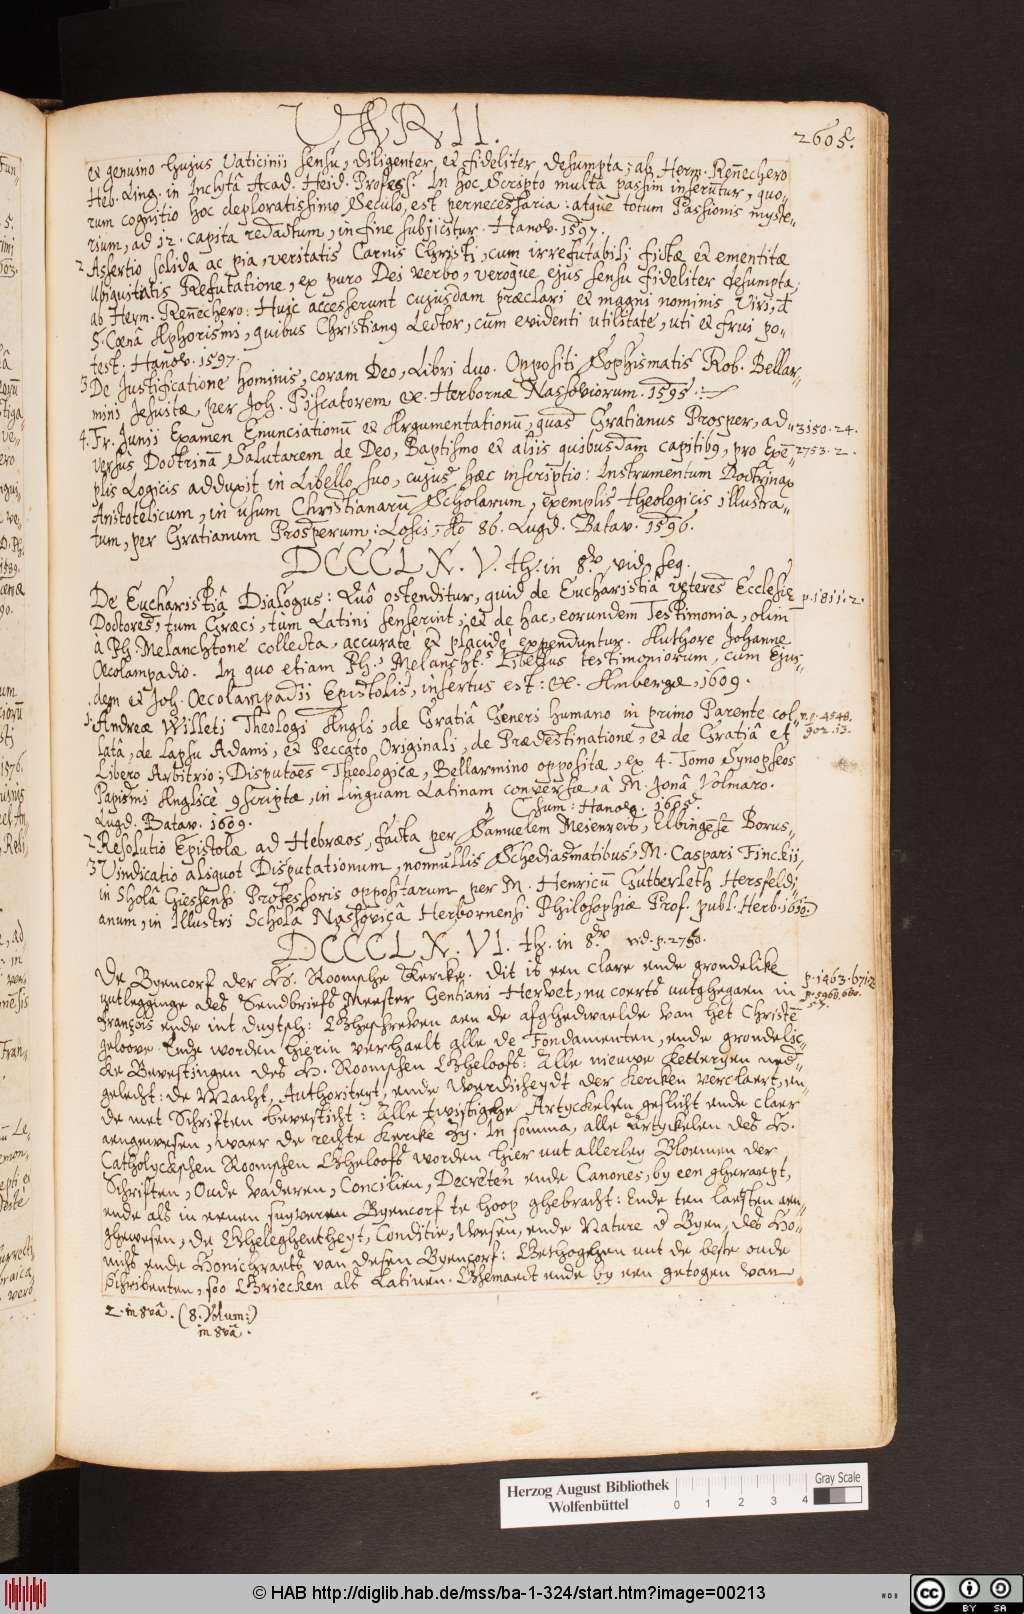 VARII.
2605.
ex genuino hujus Vaticinii sensu, diligenter, et fideliter desumpta; ab Herm. Reñechero
Heb. Ling. in Inclytâ Acad. Heid. Profess. In hoc Scripto multa passim inserũtur, quo-
rum cognitio hoc deploratissimo Seculo, est pernecessaria: atque totum Passionis myste-
rium, ad 12. capita redactum, in fine subjicitur. Hanov. 1597.
2 Assertio solida ac pia, veritatis Carnis Christi, cum irrefutabili fictæ et ementitæ
Ubiquitatis Refutatione, ex puro Dei verbo, veroque ejus sensu fideliter desumpta,
ab Herm. Reñechero: Huic accesserunt cujusdam præclari et magni nominis Viri, d
S. Cœnâ Aphorismi, quibus Christianus Lector, cum evidenti utilitate, uti et frui po-
test. Hanov. 1597.
3 De Justificatione hominis, coram Deo, Libri duo. Oppositi Sophismatis Rob. Bellar-
mini Jesuitæ, per Joh. Piscatorem &c. Herbornæ Nassoviorum. 1595.
4. Fr. Junii Examen Enunciationũ et Argumentationũ, quas Gratianus Prosper, ad-
3150. 24.
versus Doctrinã Salutarem de Deo, Baptismo et aliis quibusdam capitibus, pro Exẽ-
2753. 2.
plis Logicis adduxit in Libello suo, cujus hæc inscriptio: Instrumentum Doctrinar
Aristotelicum, in usum Christianarũ Scholarum, exemplis theologicis illustra-
tum, per Gratianum Prosperum: Losci, Ao 86. Lugd. Batav. 1596.
DCCCLX.V. th. in 8vo vid seq.
De Eucharistiâ Dialogus: Quô ostenditur, quid de Eucharistiâ veteres Ecclesiæ
p. 1811. 2.
Doctores, tum Græci, tùm Latini senserint; et de hac, eorundem Testimonia, olim
à Ph. Melanchtone collecta, accuratè et placidè expenduntur. Authore Johanne
Oecolampadio. In quo etiam Ph. Melancht. Libellus testimoniorum, cum Ejus-
dem et Joh. Oecolampadii Epistolis, insertus est: &c. Ambergæ, 1609.
1. Andreæ Willeti Theologi Angli, de Gratiâ Generi humano in primo Parente col-
v. p. 4548.
latâ, de Lapsu Adami, et Peccato Originali, de Prædestinatione, et de Gratiâ et
902. 13.
Libero Arbitrio; Disputões Theologicæ, Bellarmino oppositæ, ex 4. Tomo Synopseos
Papismi Anglicè 9scriptæ, in Linguam Latinam conversæ, à M. Jonâ Volmaro.
Lugd. Batav. 1609.
Csum: Hanov. 1605.
2 Resolutio Epistolæ ad Hebræos, facta per Samuelem Meienreis, Elbingesẽ Borus-
3 Vindicatio aliquot Disputationum, nonnullis Schediasmatibus, M. Caspari Finckii,
in Scholâ Giessensi Professoris oppositarum per M. Henricũ Gutberleth Hersfeldi-
anum, in Illustri Scholâ Nassovicâ Herbornensi Philosophiæ Prof. publ. Herb. 1610.
DCCCLX.VI. th. in 8vo vid. p. 2750.
De Byencorf der H. Roomsche Kercke. Dit is een clare ende grondelike
p. 1463. 671. 2
uutlegginge des Sendbriefs Meester Gentiani Hervet, nu coerts uutghegaen in
p. 5968. 660.
François ende int duytsch: Gheschreven aen de afghedwaelde van het Christẽ
geloove. Ende worden hierin verhaelt alle de Fondamenten, ende grondelic-
ke Bevestingen des H. Roomschen Gheloofs: Alle nieuwe Ketteryen ned-
gelecht: de Macht, Authoriteyt, ende Werdicheydt der Kercken verclaert, en-
de met Schriften bevesticht: Alle twistighe Artyckelen geslicht ende claer
aengewesen, waer de rechte Kercke zy. In somma, alle Artyckelen des H.
Catholyckschen Roomschen Gheloofs worden hier uut allerley Bloemen der
Schriften, Oude Vaderen, Concilien, Decreten ende Canones, by een gheraept,
ende als in eenen suyveren Byencorf te hoop ghebracht: Ende ten laetsten aen-
ghewesen, de Gheleghentheyt, Conditie, Wesen, ende Nature d Byen, des Ho-
nichs ende Honichraets van desen Byencorf: Gethogghen uut de beste oude
Schribenten, soo Griecken als Latinen. Ghemaeckt ende by een getogen van
2. in 8vâ. (8. Volum:)
in 8vâ.
Herzog August Bibliothek
Wolfenbüttel
0 1 2 3 4
Gray Scale
© HAB http://diglib.hab.de/mss/ba-1-324/start.htm?image=00213
CC BY SA